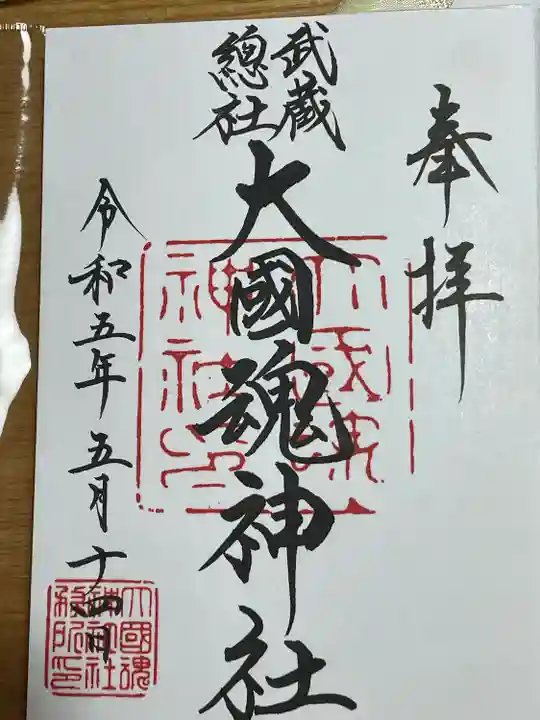 奉拝
武蔵
總社
大國魂神社
令和五年五月十四日
大國魂
神社